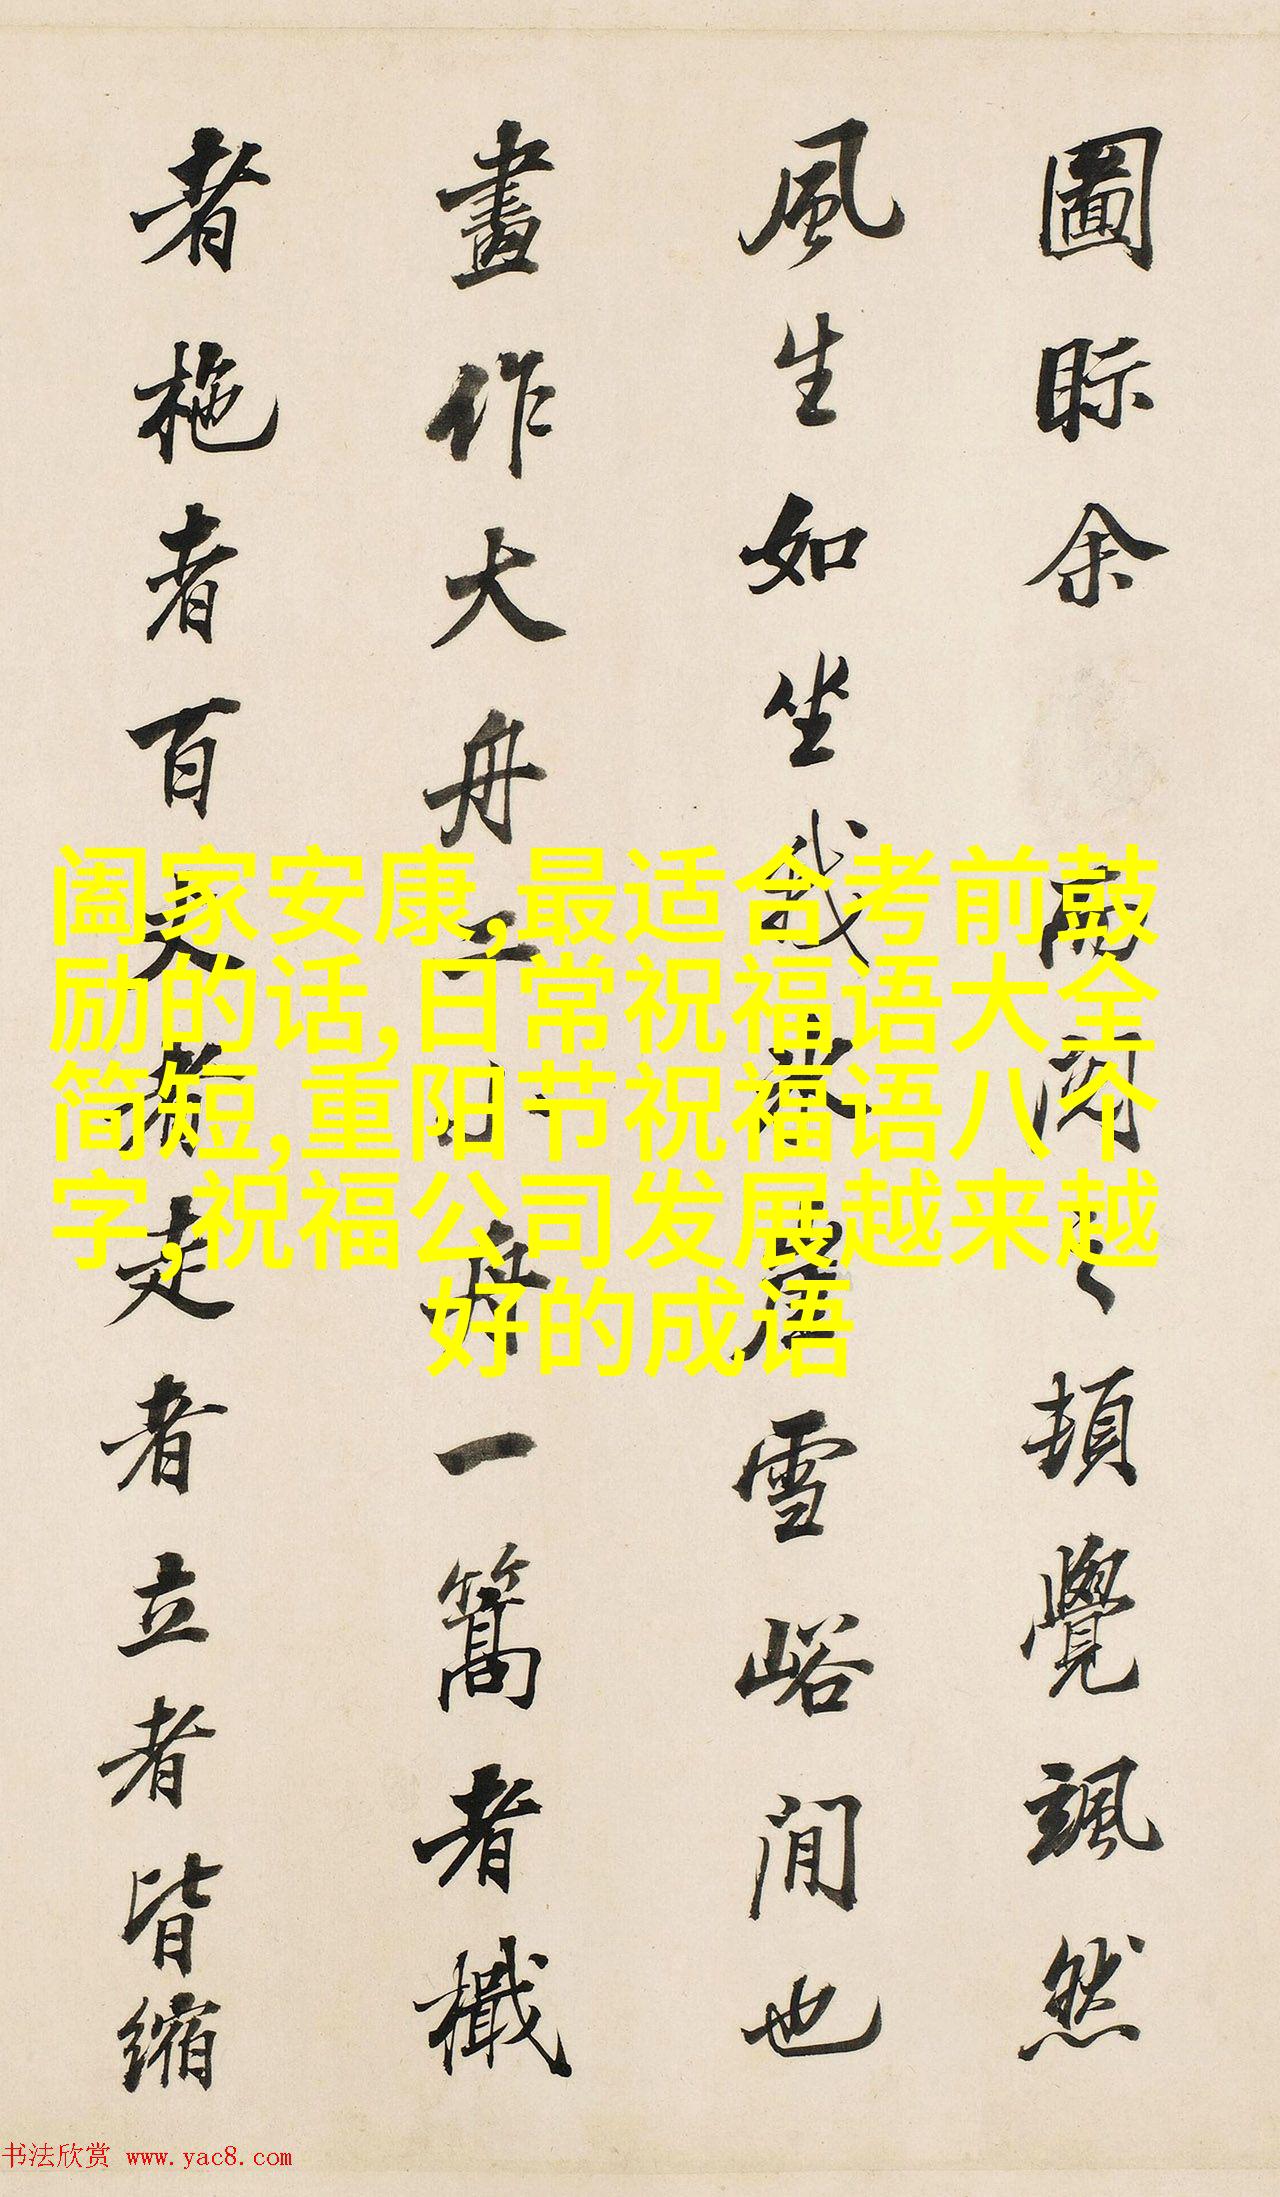 圖眎余
閱之頓覺颯然
風生如坐我冰崖雪峪間也
畫作大舟二小舟一篙者檝
者柂者百丈者走者立者皆縮
阖家安康,最适合考前鼓
励的话,日常祝福语大全
简短,重阳节祝福语八个
字,祝福公司发展越来越
好的成语
书法欣赏 www.yac8.com